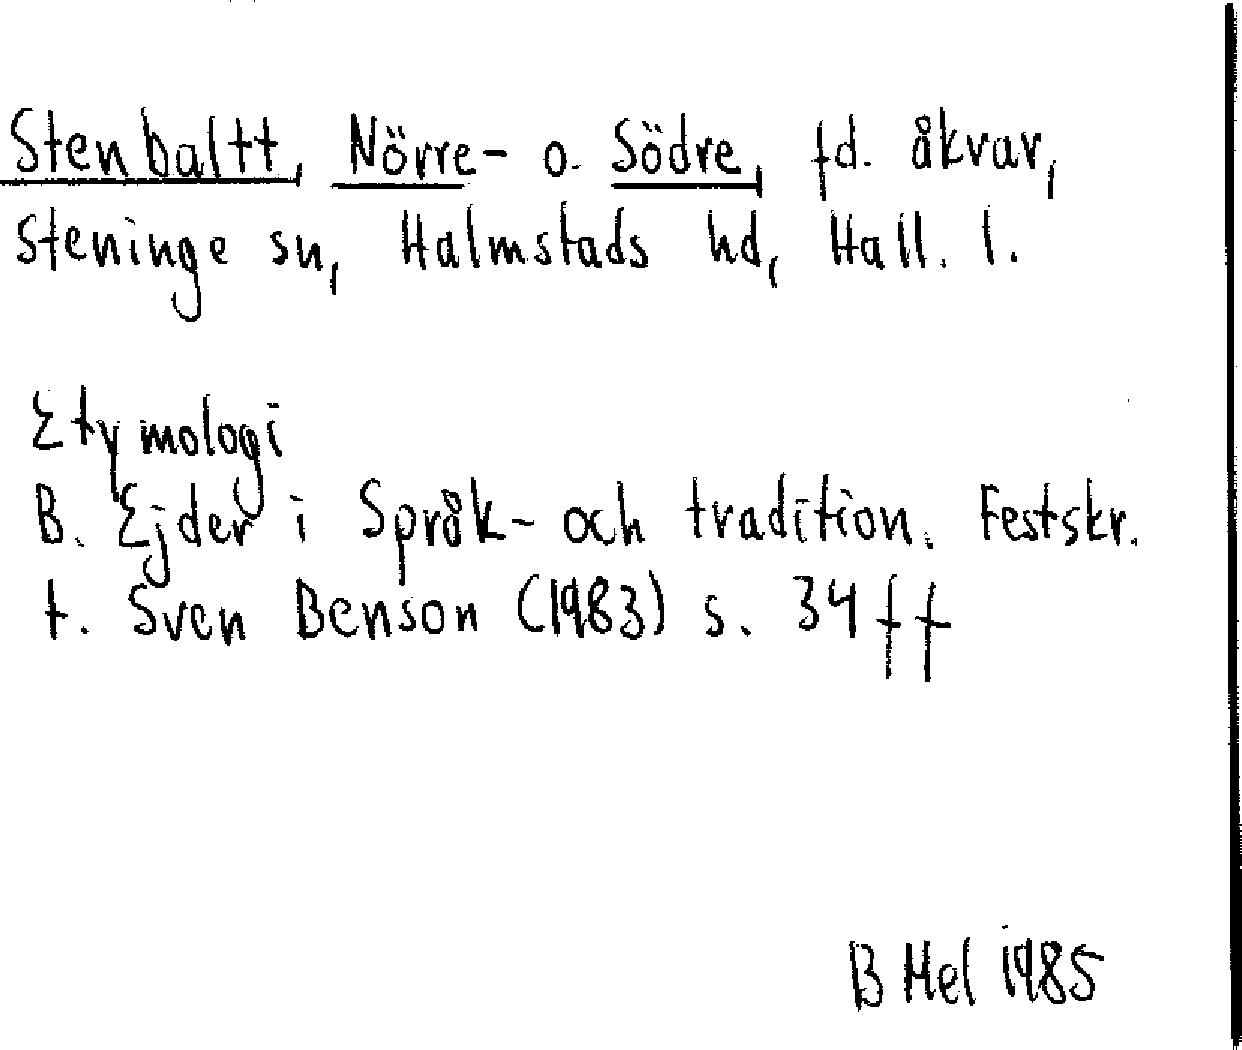 Stenbaltt, Nörre- o. Södre, fd. åkrar,
Steninge sn, Halmstads hd, Hall. l.
Etymologi
B. Ejder i Språk- och tradition. Festskr.
t. Sven Benson (1983) s. 34 ff
B Mel 1985